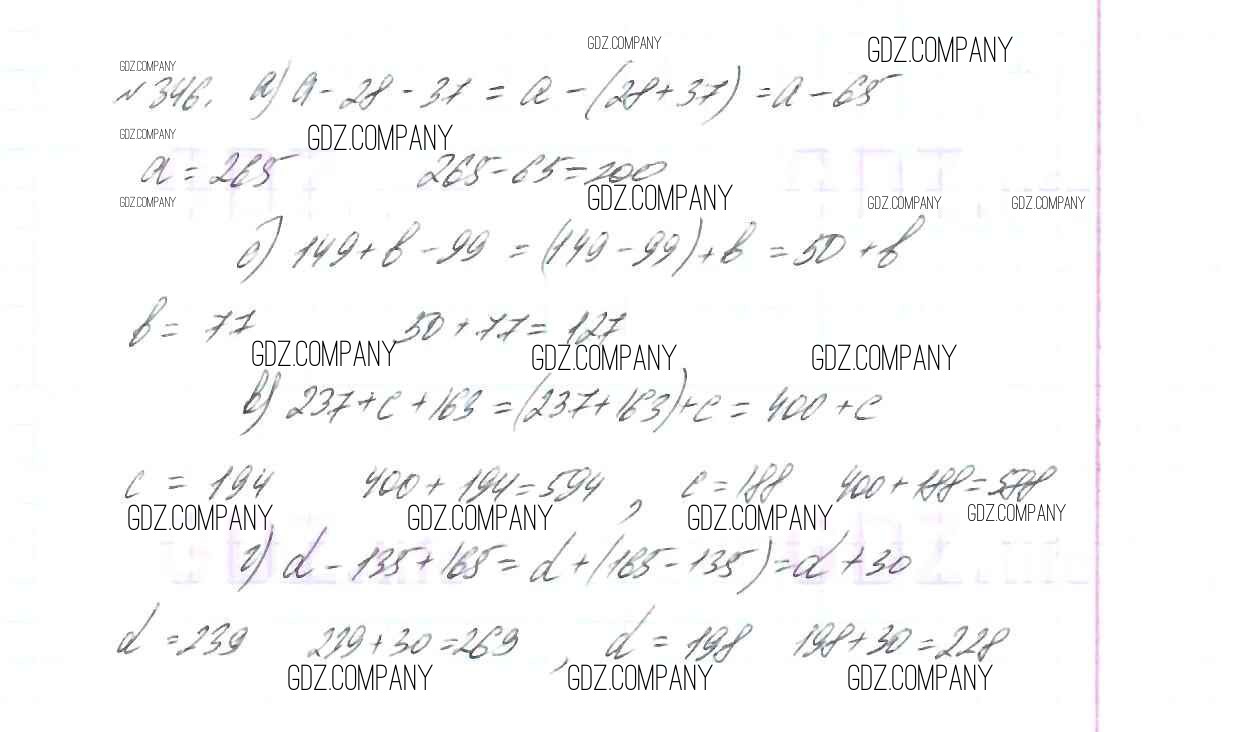 GDZ.COMPANY GDZ.COMPANY
GDZ.COMPANY
№ 346. а) a - 28 - 37 = a - (28 + 37) = a - 65
GDZ.COMPANY GDZ.COMPANY
a = 265 265 - 65 = 200
GDZ.COMPANY GDZ.COMPANY GDZ.COMPANY GDZ.COMPANY
б) 149 + b - 99 = (149 - 99) + b = 50 + b
b = 77 50 + 77 = 127
GDZ.COMPANY GDZ.COMPANY GDZ.COMPANY
в) 237 + c + 163 = (237 + 163) + c = 400 + c
c = 194 400 + 194 = 594 , c = 188 400 + 188 = 588
GDZ.COMPANY GDZ.COMPANY GDZ.COMPANY GDZ.COMPANY
г) d - 135 + 165 = d + (165 - 135) = d + 30
d = 239 239 + 30 = 269 , d = 198 198 + 30 = 228
GDZ.COMPANY GDZ.COMPANY GDZ.COMPANY